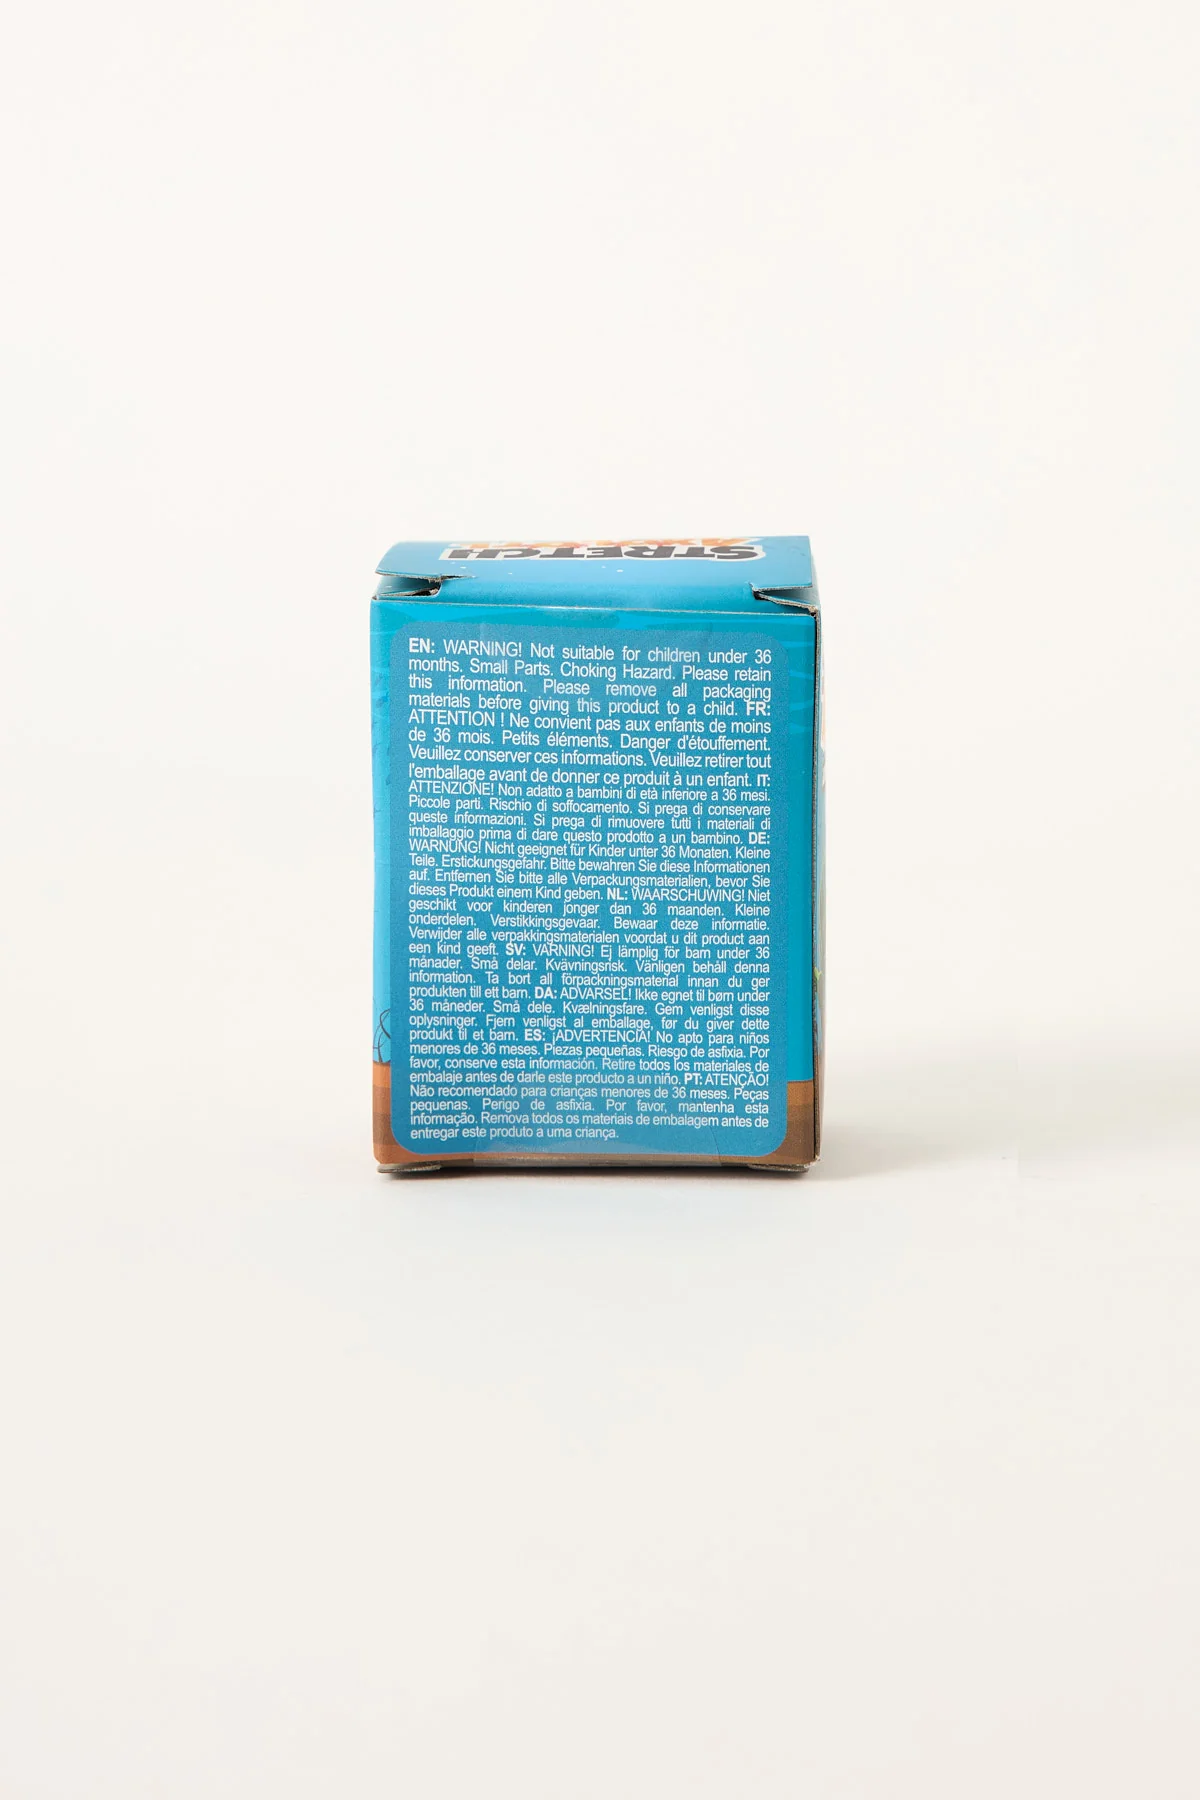 STRETCH
EN: WARNING! Not suitable for children under 36
months. Small Parts. Choking Hazard. Please retain
this information. Please remove all packaging
materials before giving this product to a child. FR:
ATTENTION ! Ne convient pas aux enfants de moins
de 36 mois. Petits éléments. Danger d'étouffement.
Veuillez conserver ces informations. Veuillez retirer tout
l'emballage avant de donner ce produit à un enfant. IT:
ATTENZIONE! Non adatto a bambini di età inferiore a 36 mesi.
Piccole parti. Rischio di soffocamento. Si prega di conservare
queste informazioni. Si prega di rimuovere tutti i materiali di
imballaggio prima di dare questo prodotto a un bambino. DE:
WARNUNG! Nicht geeignet für Kinder unter 36 Monaten. Kleine
Teile. Erstickungsgefahr. Bitte bewahren Sie diese Informationen
auf. Entfernen Sie bitte alle Verpackungsmaterialien, bevor Sie
dieses Produkt einem Kind geben. NL: WAARSCHUWING! Niet
geschikt voor kinderen jonger dan 36 maanden. Kleine
onderdelen. Verstikkingsgevaar. Bewaar deze informatie.
Verwijder alle verpakkingsmaterialen voordat u dit product aan
een kind geeft. SV: VARNING! Ej lämplig för barn under 36
månader. Små delar. Kvävningsrisk. Vänligen behåll denna
information. Ta bort all förpackningsmaterial innan du ger
produkten till ett barn. DA: ADVARSEL! Ikke egnet til børn under
36 måneder. Små dele. Kvælningsfare. Gem venligst disse
oplysninger. Fjern venligst al emballage, før du giver dette
produkt til et barn. ES: ¡ADVERTENCIA! No apto para niños
menores de 36 meses. Piezas pequeñas. Riesgo de asfixia. Por
favor, conserve esta información. Retire todos los materiales de
embalaje antes de darle este producto a un niño. PT: ATENÇÃO!
Não recomendado para crianças menores de 36 meses. Peças
pequenas. Perigo de asfixia. Por favor, mantenha esta
informação. Remova todos os materiais de embalagem antes de
entregar este produto a uma criança.